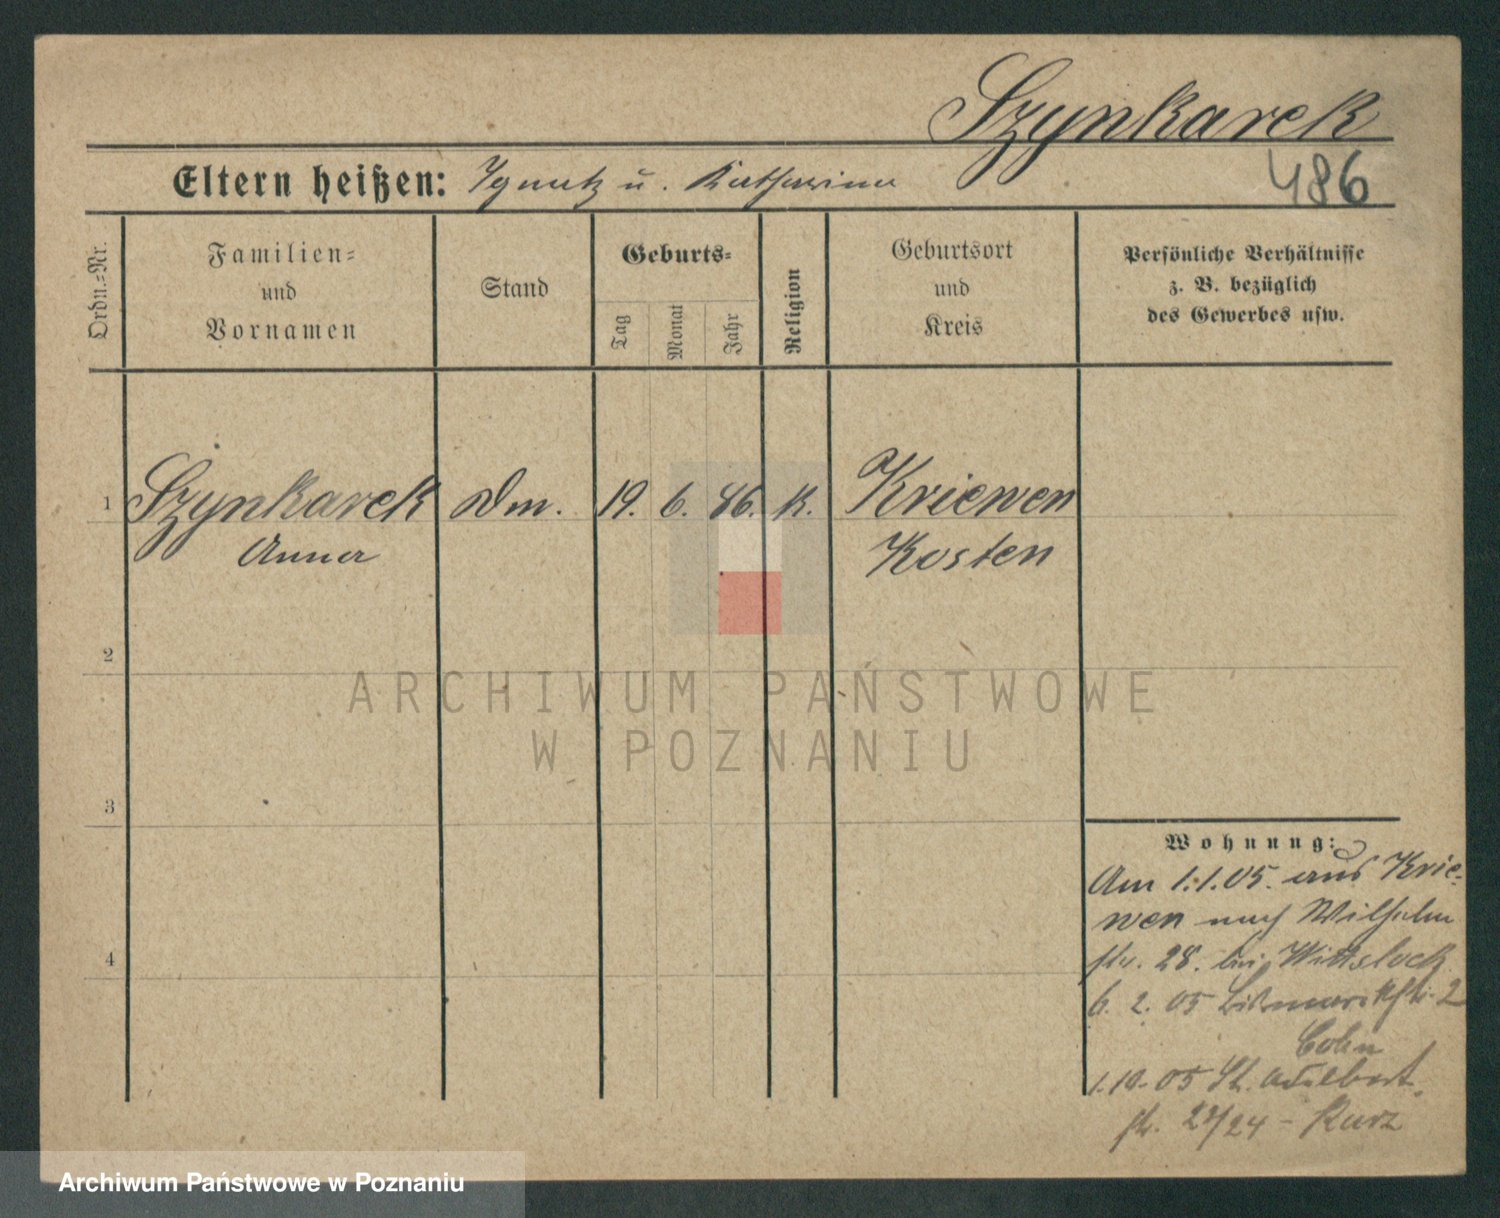 Szynkarek
Eltern heißen: Ignatz u. Katharina
486
Ordn.=Nr.
Familien=
und
Vornamen
Stand
Geburts=
Tag
Monat
Jahr
Religion
Geburtsort
und
Kreis
Persönliche Verhältnisse
z. B. bezüglich
des Gewerbes usw.
1 Szynkarek Dm. 19. 6. 86. K. Kriewen
Anna Kosten
2
3
4
ARCHIWUM PAŃSTWOWE
W POZNANIU
Wohnung:
Am 1.1.05. aus Krie-
wen nach Wilhelm
str. 28. bei Wittslock
6. 2. 05 Bismarckstr. 2
Cohn
1.10.05 St. Adalbert
str. 23/24 - Kurz
Archiwum Państwowe w Poznaniu